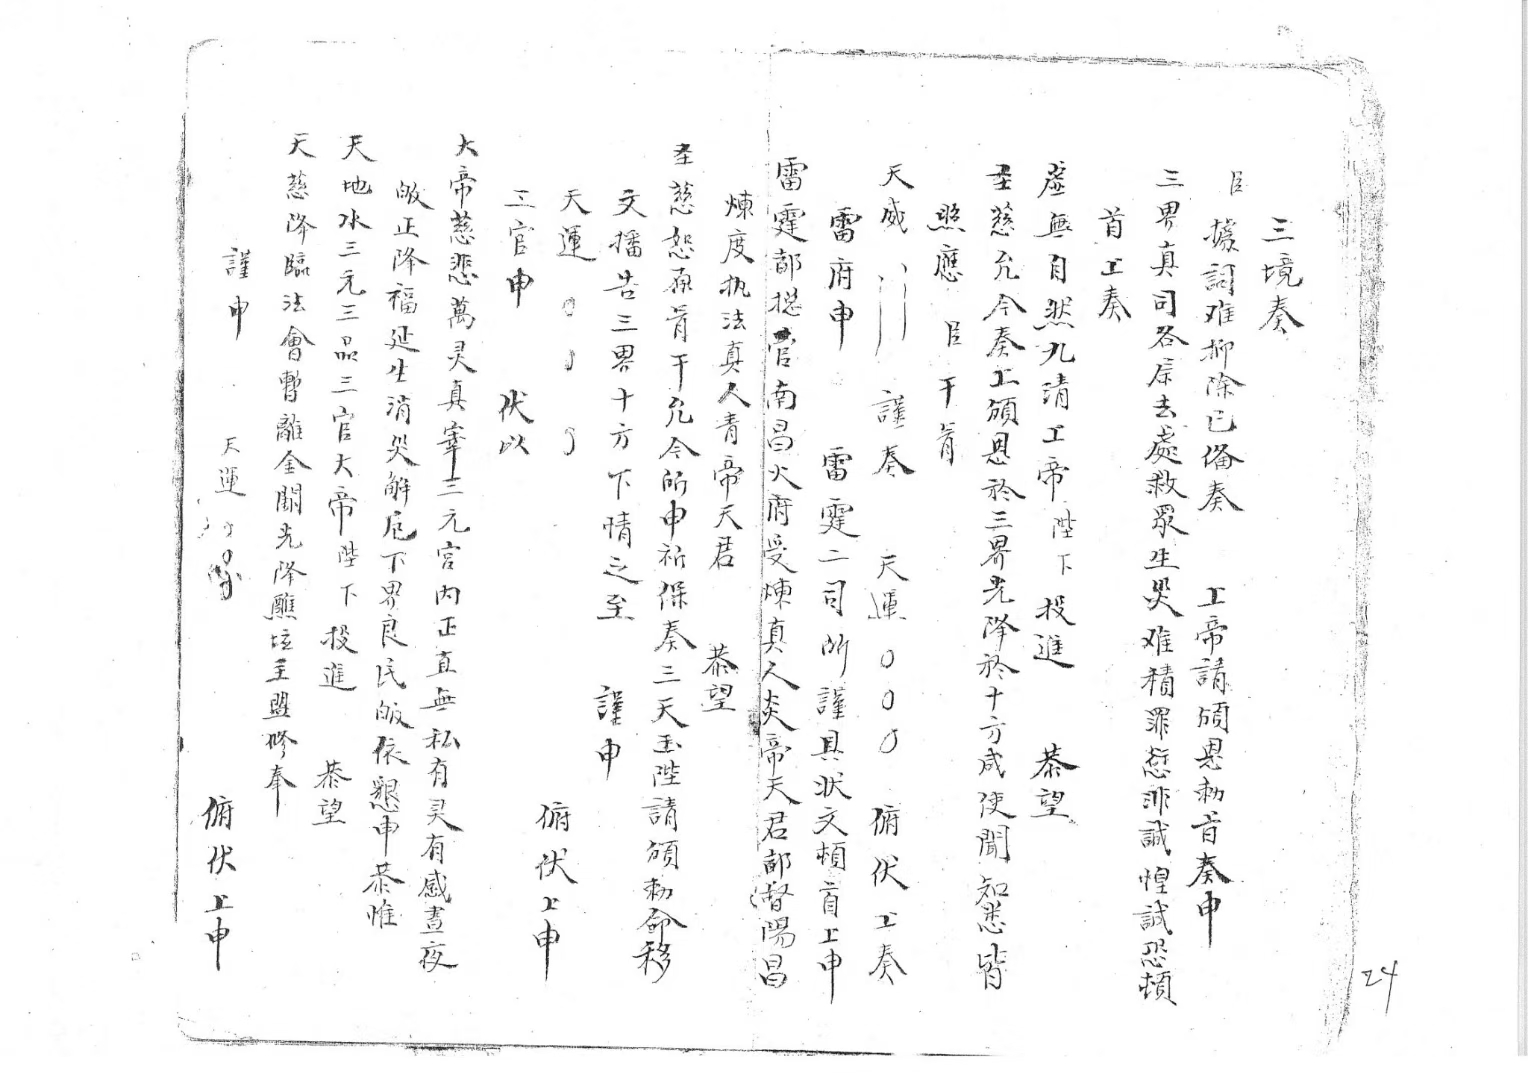 三境奏
臣 據詞难抑除已俻奏 上帝請頒恩勑旨奏申
三界真司各宗去處救眾生災难積罪愆誹誠惶誠恐頓
首上奏
虛無自然九清上帝陛下 投進 恭望
圣慈允令奏上頒恩於三界光降於十方咸使聞知悉皆
照應 臣干冐
天威 謹奏 天運〇〇〇 俯伏上奏
雷府申 雷霆二司所謹具狀文頓首上申
雷霆都捴官南昌火府受煉真人炎帝天君都督陽昌
煉度执法真人青帝天君 恭望
圣慈恕䏍冐干允令所申祈保奏三天玉陛請頒勑命移
文播告三界十方下情之至 謹申
天運 俯伏上申
三官申 伏以
大帝慈悲萬灵真宰三元宮內正直無私有灵有感晝夜
皈正降福延生消災解厄下界良民皈依懇申恭惟
天地水三元三品三官大帝陛下 投進 恭望
天慈降臨法會暫離金闕光降醮坛主盟修奉
謹申 天運 俯伏上申
24